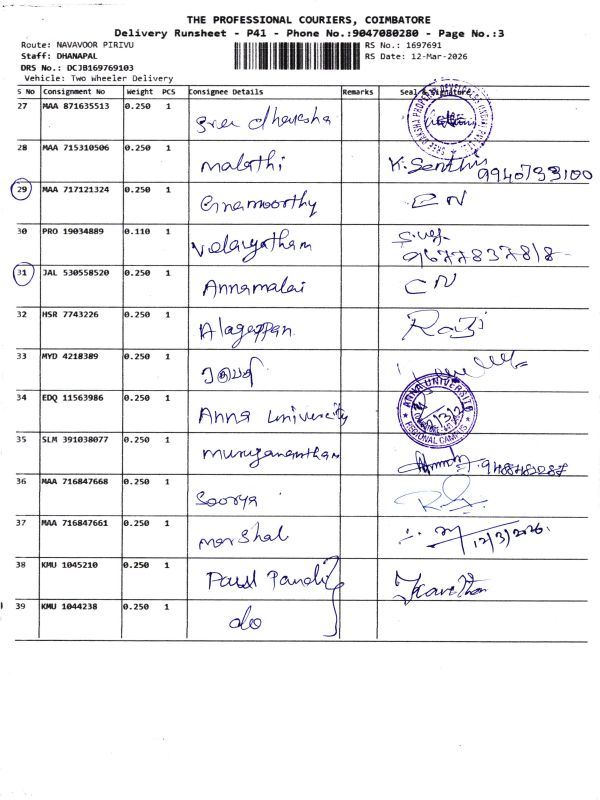 THE PROFESSIONAL COURIERS, COIMBATORE
Delivery Runsheet - P41 - Phone No.:9047080280 - Page No.:3
Route: NAVAVOOR PIRIVU
RS No.: 1697691
Staff: DHANAPAL
RS Date: 12-Mar-2026
DRS No.: DCJB169769103
Vehicle: Two Wheeler Delivery
S No Consignment No Weight PCS Consignee Details Remarks Seal & Signature
27 MAA 871635513 0.250 1 Sree dharsha
28 MAA 715310506 0.250 1 Malathi K. Senthil 9940733100
29 MAA 717121324 0.250 1 CN
30 PRO 19034889 0.110 1 Velayutham 9677837818
31 JAL 530558520 0.250 1 Annamalai CN
32 HSR 7743226 0.250 1 Alagappan
33 MYD 4218389 0.250 1
34 EDQ 11563986 0.250 1 Anna University ANNA UNIVERSITY REGIONAL CAMPUS
35 SLM 391038077 0.250 1 Muruganantham
36 MAA 716847668 0.250 1 Soorya
37 MAA 716847661 0.250 1 Marshal 12/3/2026.
38 KMU 1045210 0.250 1 Paul Pandi
39 KMU 1044238 0.250 1 do